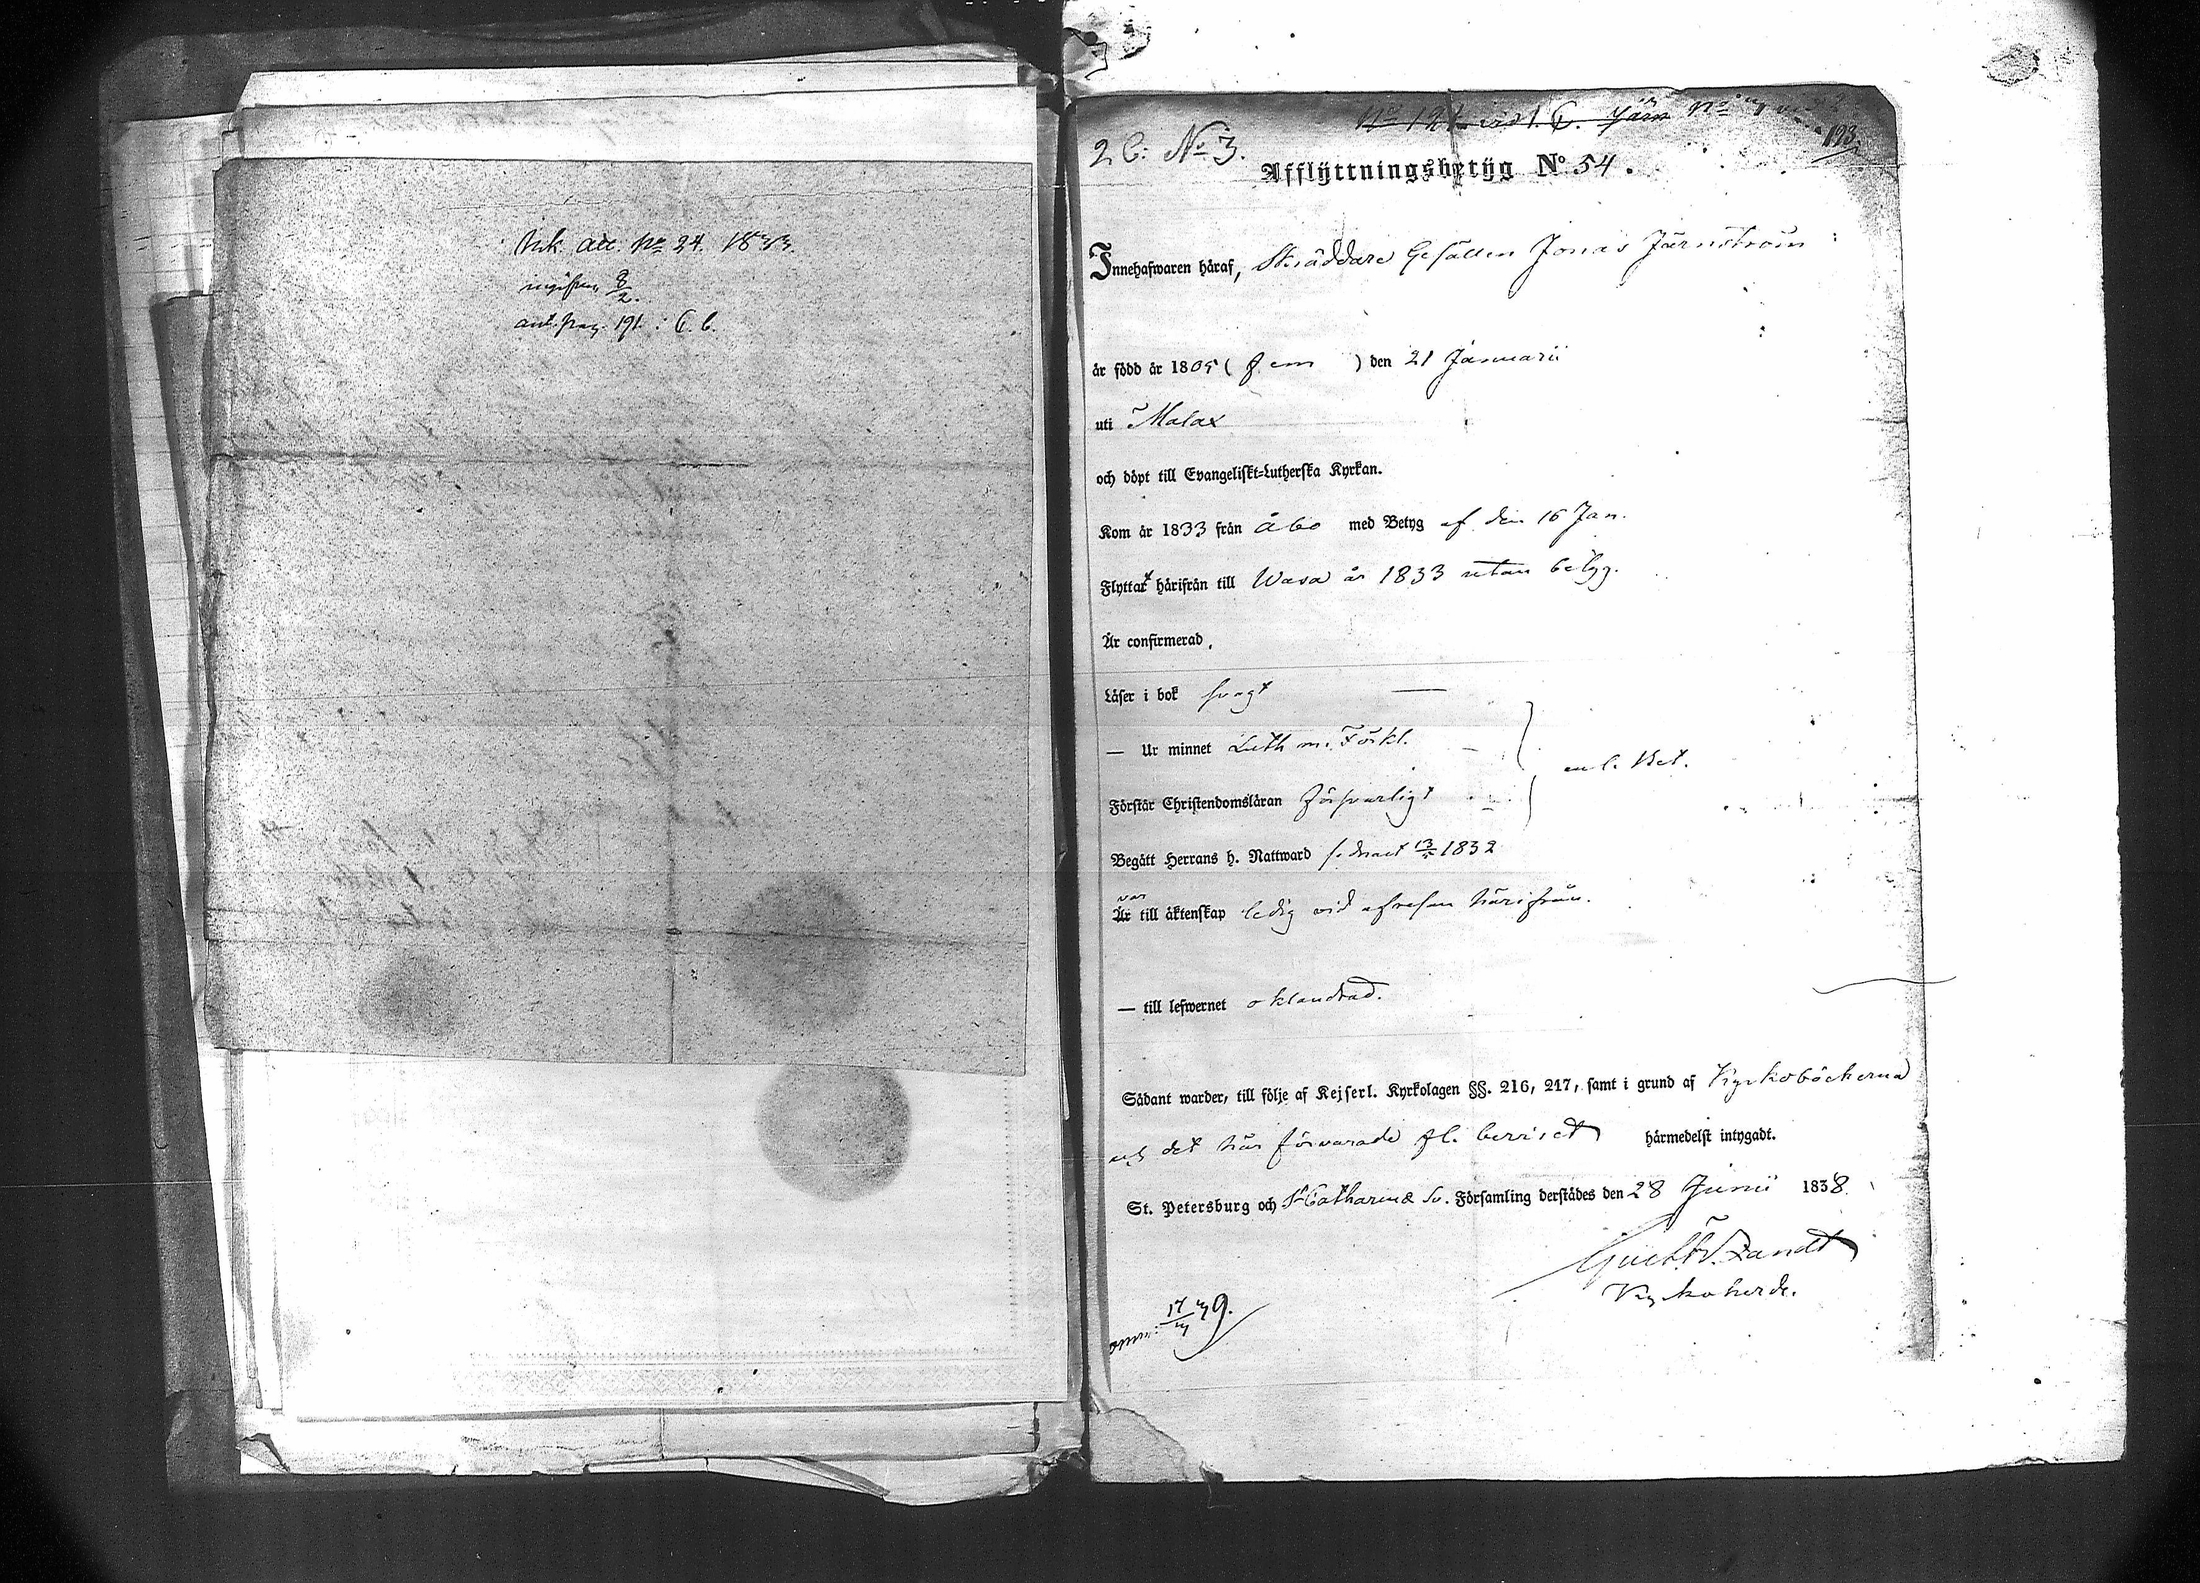 att. No 24. 1833.
8/2.
pag. 191. : C. b.
2 b: No 3.
No
193.
Afflÿttningsbetÿg No 54.
Innehafwaren häraf, Skräddare Gesällen Jonas Järnström
är född år 1805 ( fem ) den 21 Januarii
uti Malax
och döpt till Evangeliskt=Lutherska Kyrkan.
Kom år 1833 från Åbo med Betyg af den 16 Jan.
Flyttat härifrån till Wasa år 1833 utan betyg.
Är confirmerad.
Läser i bok svagt —
— Ur minnet Luth m. Förkl.
enl. Bet.
Förstår Christendomsläran försvarligt
Begått Herrans h. Nattward s. 1832
var
Är till äktenskap ledig vid afresan härifrån.
— till lefwernet oklandrad.
Sådant warder, till följe af Kejserl. Kyrkolagen §§. 216, 217, samt i grund af Kyrkoböckerna
och det här förvarade fl. beviset härmedelst intygadt.
St. Petersburg och St Catharinæ Sv. Församling derstädes den 28 Junii 1838.
Kyrkoherde.
39.